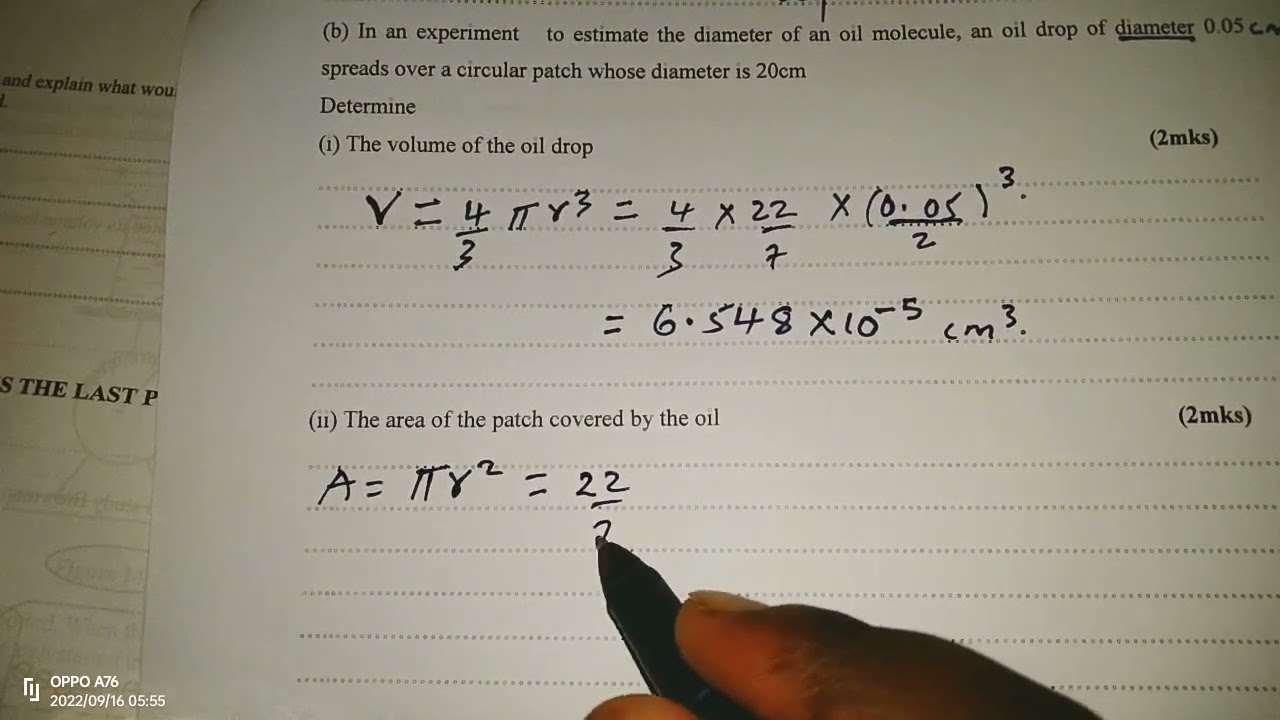 (b) In an experiment to estimate the diameter of an oil molecule, an oil drop of diameter 0.05 cm
spreads over a circular patch whose diameter is 20cm
Determine
(i) The volume of the oil drop (2mks)
V = 4/3 π r³ = 4/3 × 22/7 × (0.05/2)³.
= 6.548 × 10⁻⁵ cm³.
(ii) The area of the patch covered by the oil (2mks)
A = πr² = 22
and explain what wou
S THE LAST P
OPPO A76
2022/09/16 05:55